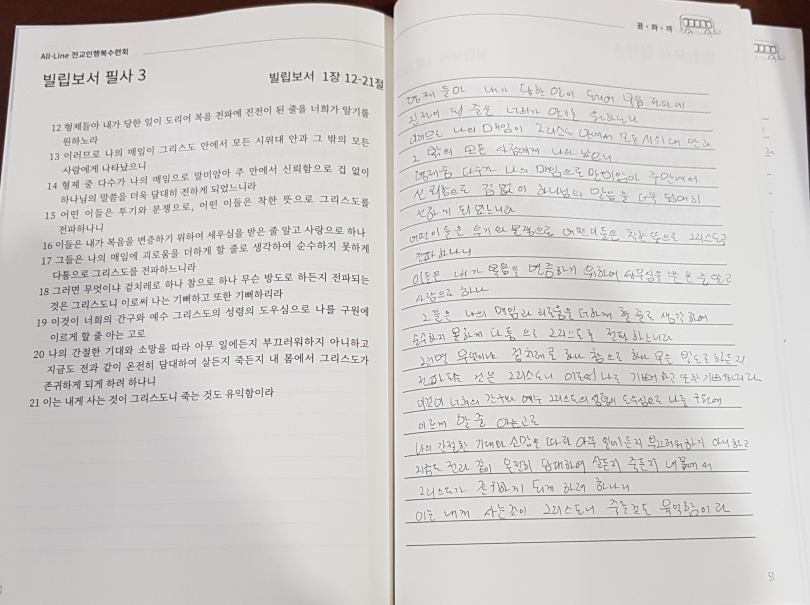 All-Line 전교인행복수련회
빌립보서 필사 3
빌립보서 1장 12-21절
12 형제들아 내가 당한 일이 도리어 복음 전파에 진전이 된 줄을 너희가 알기를
원하노라
13 이러므로 나의 매임이 그리스도 안에서 모든 시위대 안과 그 밖의 모든
사람에게 나타났으니
14 형제 중 다수가 나의 매임으로 말미암아 주 안에서 신뢰함으로 겁 없이
하나님의 말씀을 더욱 담대히 전하게 되었느니라
15 어떤 이들은 투기와 분쟁으로, 어떤 이들은 착한 뜻으로 그리스도를
전파하나니
16 이들은 내가 복음을 변증하기 위하여 세우심을 받은 줄 알고 사랑으로 하나
17 그들은 나의 매임에 괴로움을 더하게 할 줄로 생각하여 순수하지 못하게
다툼으로 그리스도를 전파하느니라
18 그러면 무엇이냐 겉치레로 하나 참으로 하나 무슨 방도로 하든지 전파되는
것은 그리스도니 이로써 나는 기뻐하고 또한 기뻐하리라
19 이것이 너희의 간구와 예수 그리스도의 성령의 도우심으로 나를 구원에
이르게 할 줄 아는 고로
20 나의 간절한 기대와 소망을 따라 아무 일에든지 부끄러워하지 아니하고
지금도 전과 같이 온전히 담대하여 살든지 죽든지 내 몸에서 그리스도가
존귀하게 되게 하려 하나니
21 이는 내게 사는 것이 그리스도니 죽는 것도 유익함이라
꿈·파·까
형제들아 내가 당한 일이 도리어 복음 전파에
진전이 된 줄을 너희가 알기를 원하노라
이러므로 나의 매임이 그리스도 안에서 모든 시위대 안과
그 밖의 모든 사람에게 나타났으니
형제중 다수가 나의 매임으로 말미암아 주안에서
신뢰함으로 겁없이 하나님의 말씀을 더욱 담대히
전하게 되었느니라
어떤이들은 투기와 분쟁으로 어떤이들은 착한뜻으로 그리스도를
전파하나니
이들은 내가 복음을 변증하기 위하여 세우심을 받은 줄 알고
사랑으로 하나
그들은 나의 매임과 괴로움을 더하게 할 줄로 생각하여
순수하지 못하게 다툼으로 그리스도를 전파하느니라
그러면 무엇이냐 겉치레로 하나 참으로 하나 무슨 방도로 하든지
전파되는 것은 그리스도니 이로써 나는 기뻐하고 또한 기뻐하리라
이것이 너희의 간구와 예수 그리스도의 성령의 도우심으로 나를 구원에
이르게 할 줄 아는고로
나의 간절한 기대와 소망을 따라 아무 일에든지 부끄러워하지 아니하고
지금도 전과 같이 온전히 담대하여 살든지 죽든지 내 몸에서
그리스도가 존귀하게 되게 하려 하나니
이는 내게 사는것이 그리스도니 죽는것도 유익함이라
51